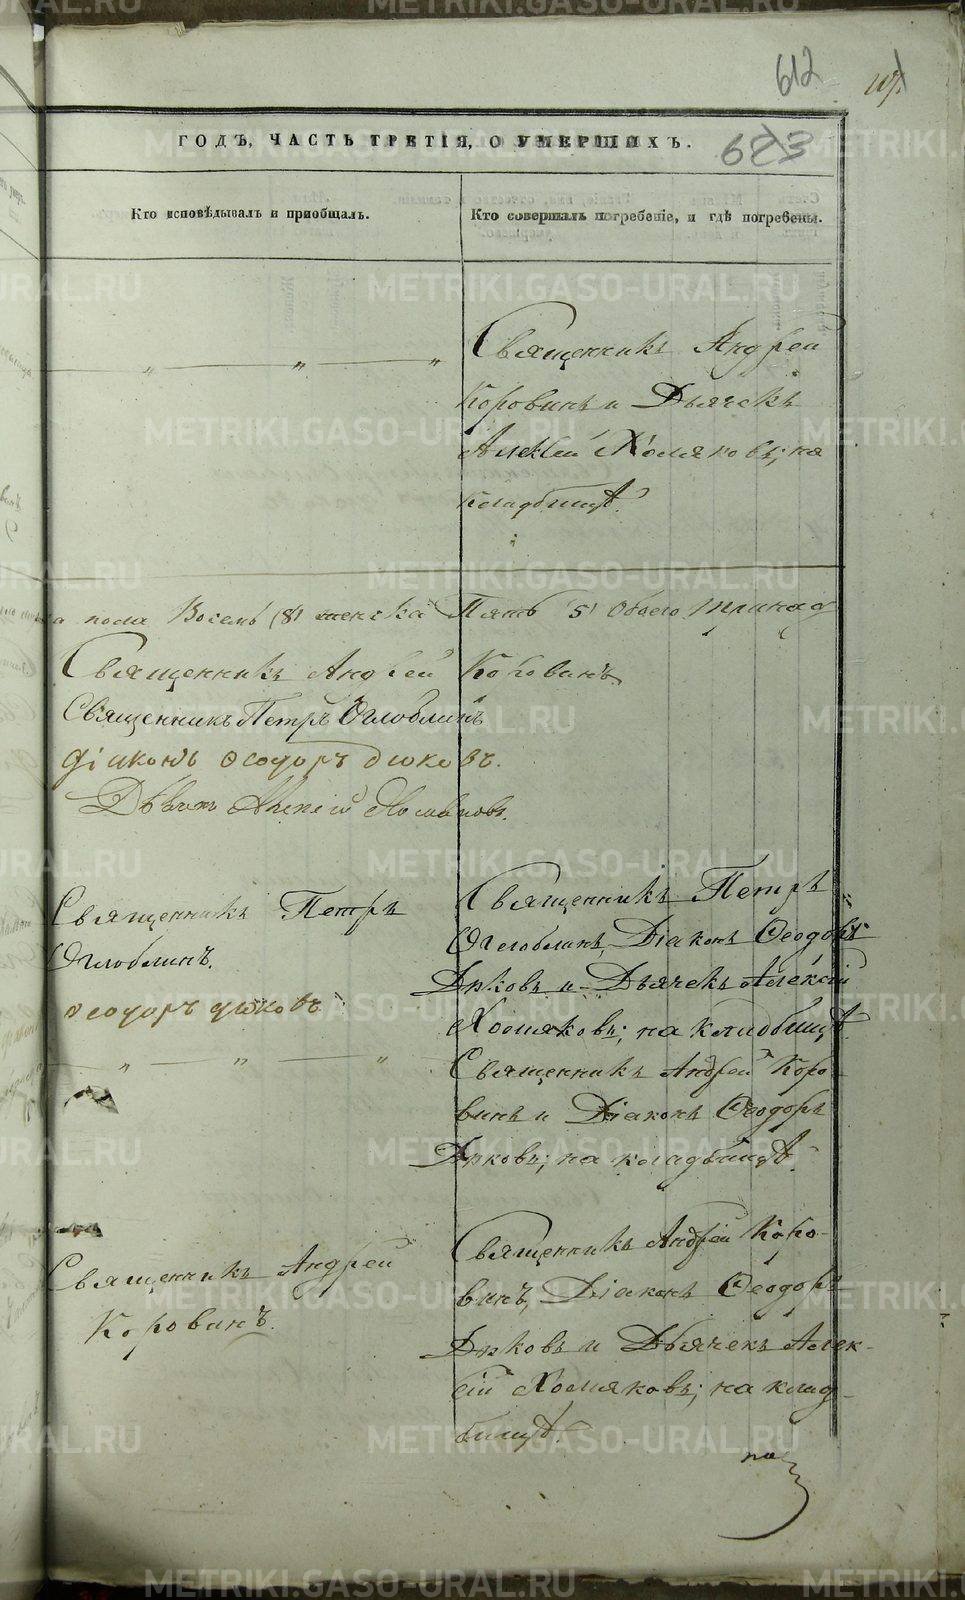 612
623
ГОДЪ, ЧАСТЬ ТРЕТІЯ, О УМЕРШИХЪ.
Кто исповѣдывалъ и пріобщалъ.
Кто совершалъ погребеніе, и гдѣ погребены.
Священникъ Андрей
Коровинъ и Дьячекъ
Алексѣй Хомяковъ; на
кладбищѣ.
а пола Восемь (8) женска Пять (5) Обоего тринад
Священникъ Андрей Коровинъ
Священникъ Петръ Оглоблинъ
діаконъ Ѳеодоръ Дюковъ.
Дьячекъ Алексій Хомяковъ.
Священникъ Петръ
Оглоблинъ.
Ѳеодоръ Дюковъ
Священникъ Петръ
Оглоблинъ, Діаконъ Ѳеодоръ
Дюковъ и Дьячекъ Алексій
Хомяковъ; на кладбищѣ.
Священникъ Андрей Коро-
винъ и Діаконъ Ѳеодоръ
Дюковъ; на кладбищѣ.
Священникъ Андрей
Коровинъ.
Священникъ Андрей Коро-
винъ, Діаконъ Ѳеодоръ
Дюковъ и Дьячекъ Алек-
сій Хомяковъ; на клад-
бищѣ.
по
METRIKI.GASO-URAL.RU